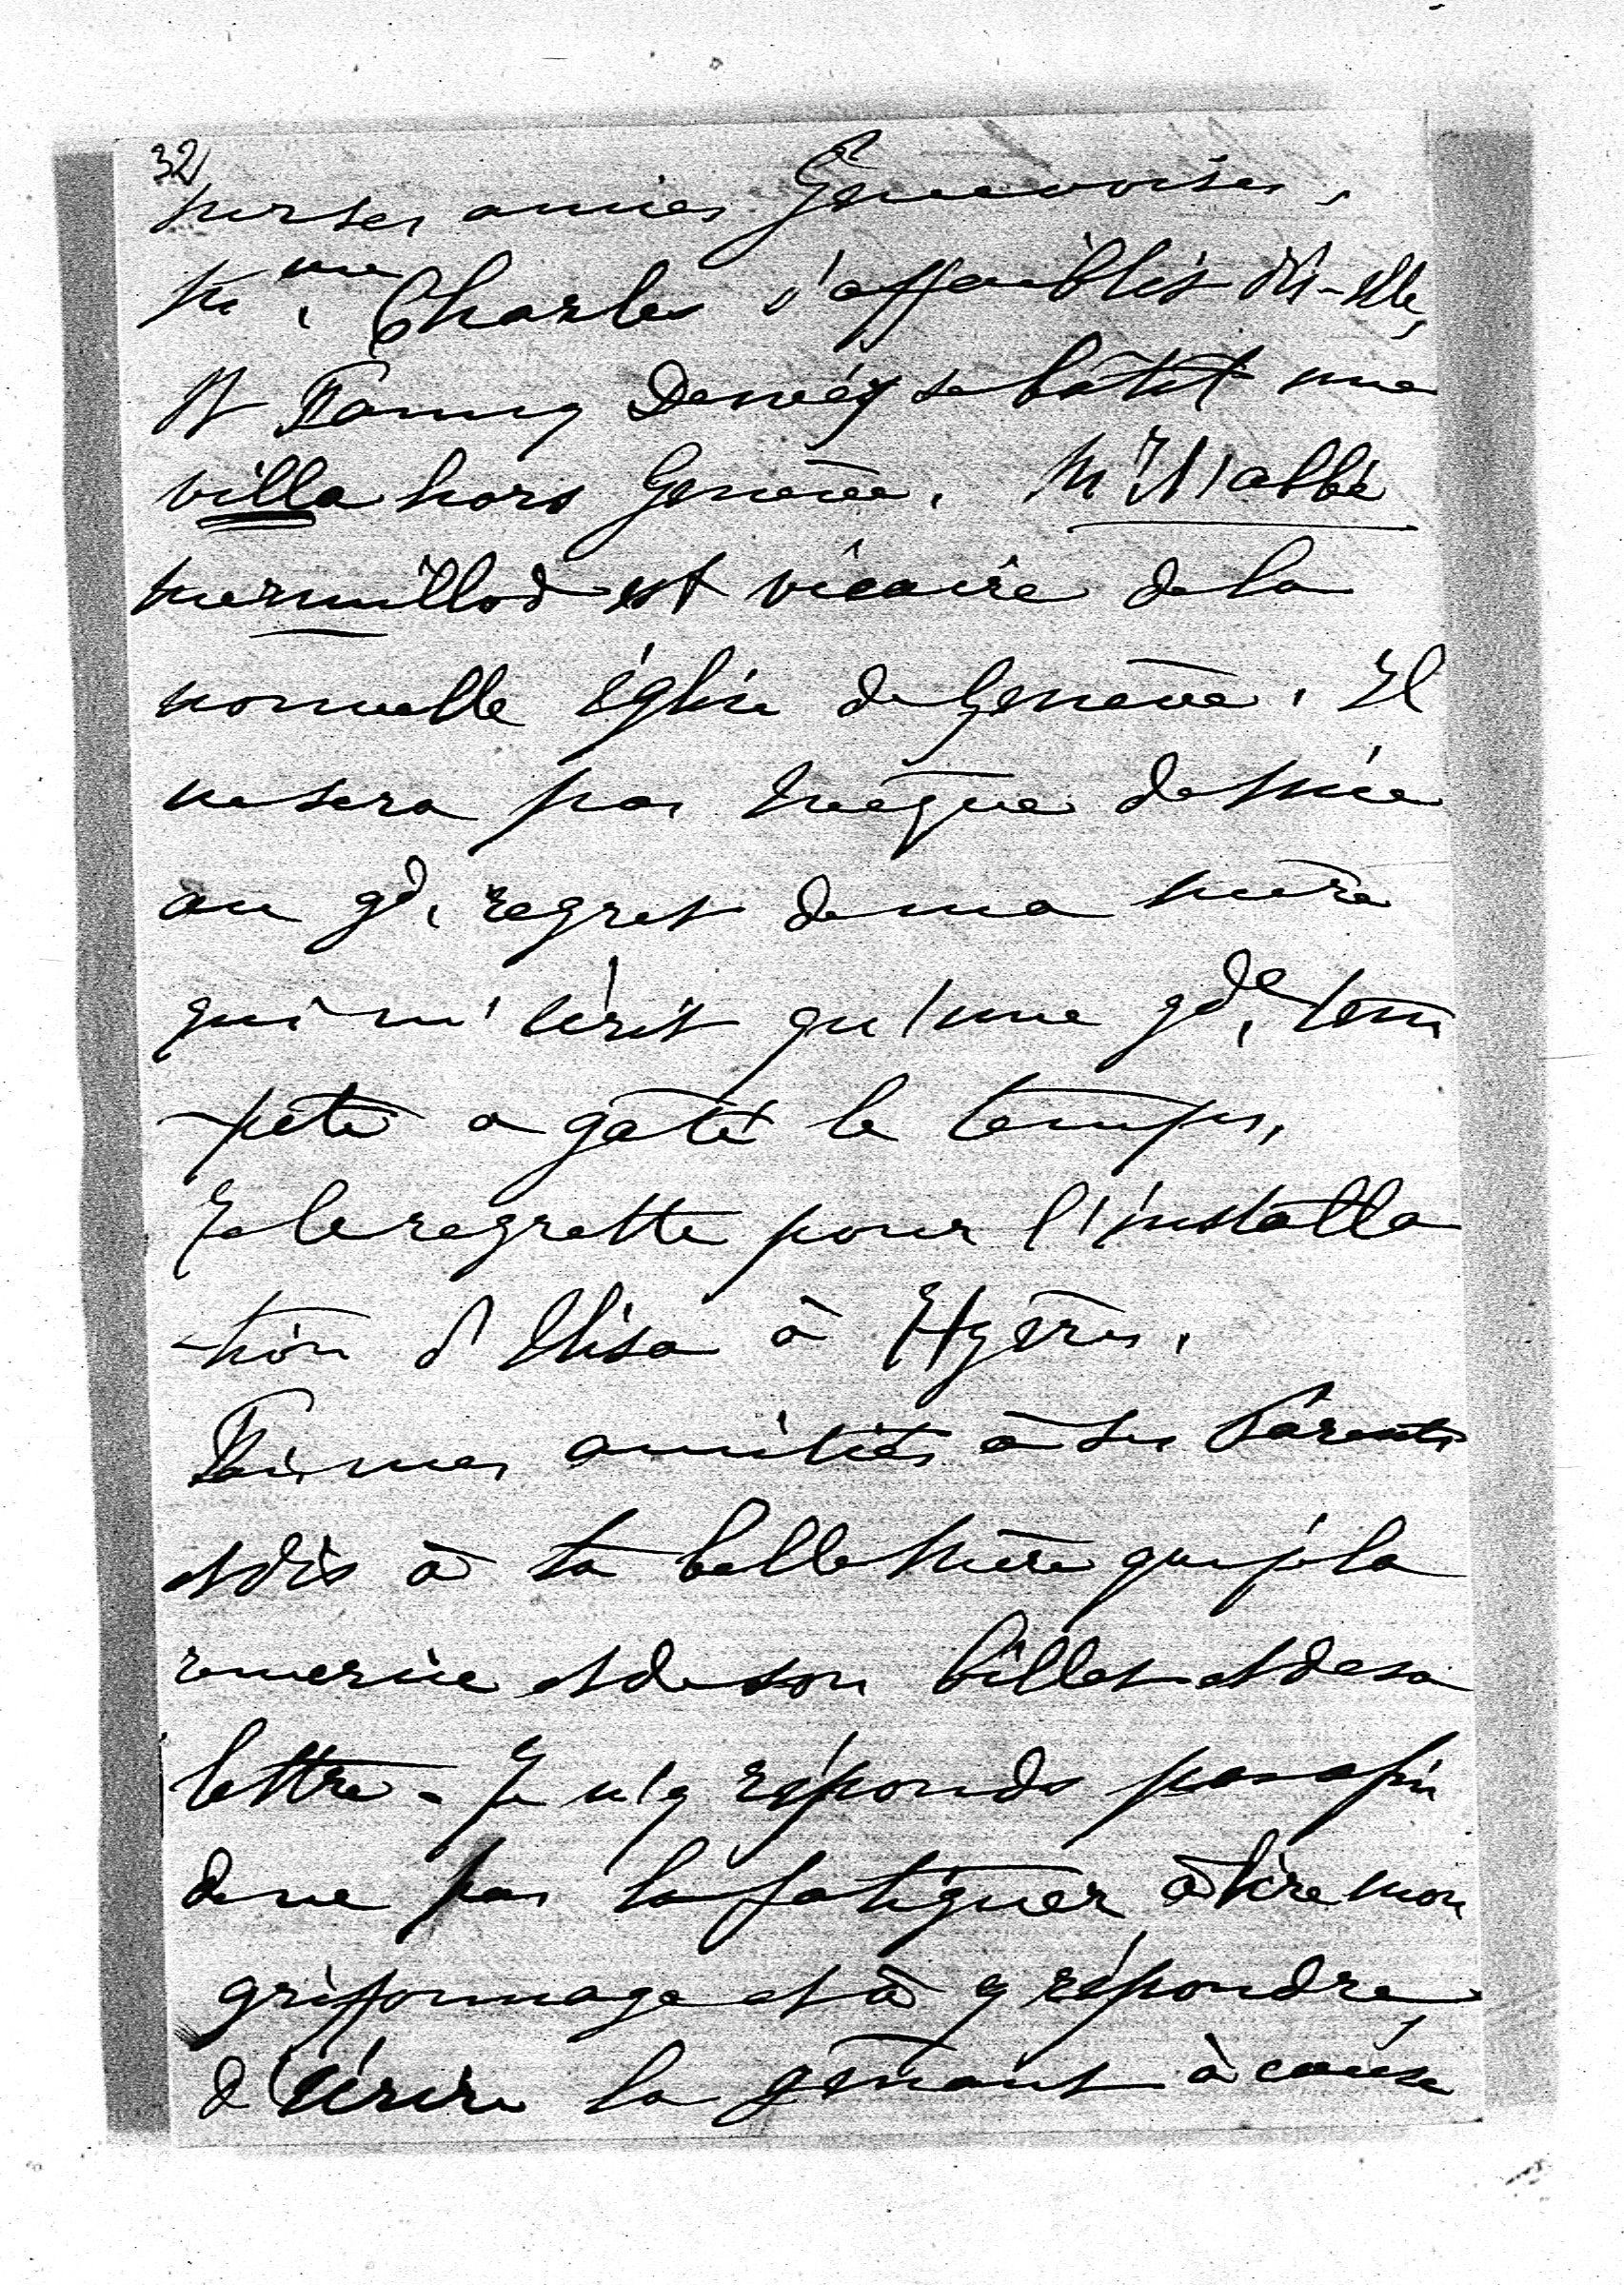 32/
sur ses amies Genevoises,
Mme. Charles s'affaiblit dit-elle,
et Fanny se bâtit une
villa hors Genève. Mr l'abbé
Mermillod est vicaire de la
nouvelle église de Genève. Il
ne sera pas évêque de Nice
au gd. regret de ma mère
qui m'écrit qu'une gde. tem
-pête a gâté le temps,
Je le regrette pour l'installa
-tion d'Elisa à Hyères.
Fais mes amitiés à ses Parents
et dis à ta belle Mère que je la
remercie et de son billet et de sa
lettre - Je n'y réponds pas afin
de ne pas la fatiguer à lire mon
griffonnage et à y répondre,
d'écrire la gênant à cause